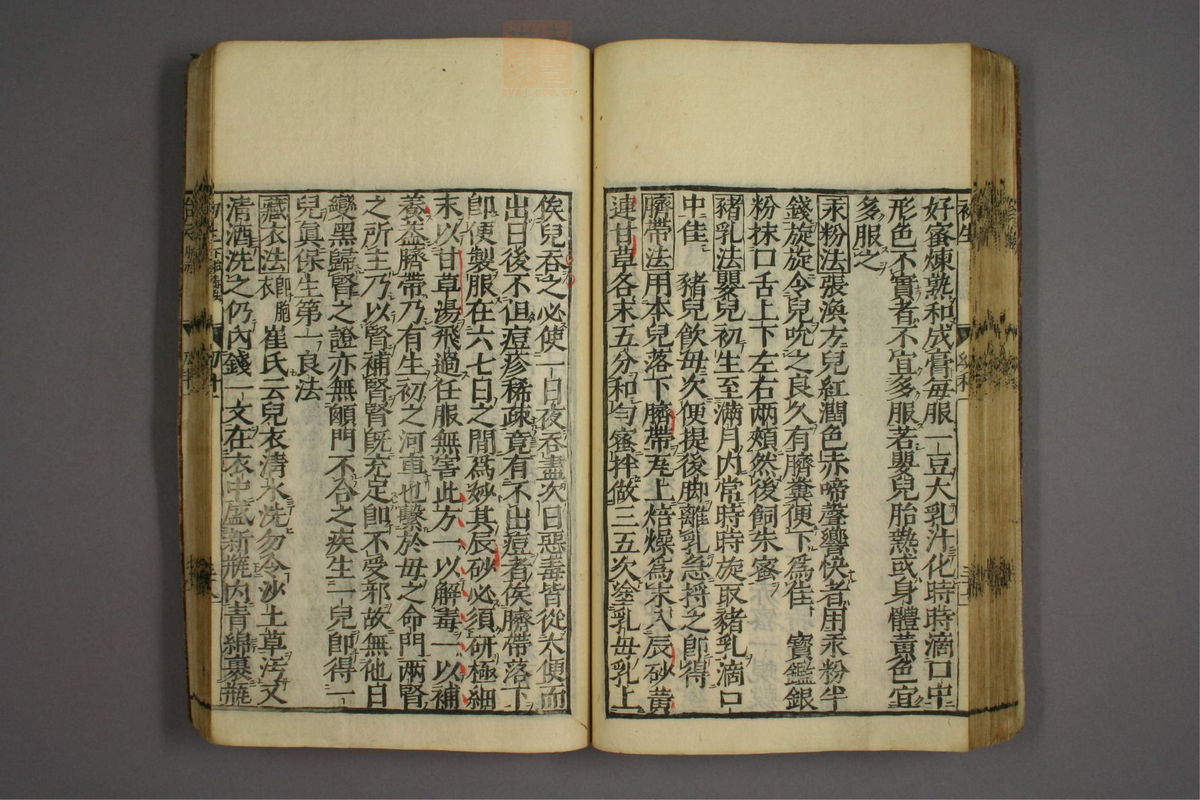 好蜜煉熟和成膏每服一豆大乳汁化時時滴口中
形色不實者不宜多服若嬰兒胎熱或身體黃色宜
多服之
汞粉法張渙方兒紅潤色赤啼聲響快者用汞粉半
錢旋旋令兒吮之良久有臍糞便下為佳 寶鑑銀
粉抹口舌上下左右兩頰然後飼朱蜜
豬乳法嬰兒初生至滿月內常時時旋取豬乳滴口
中佳 豬兒飲母次便提後脚離乳急捋之即得
臍帶法用本兒落下臍帶瓦上焙燥為末入辰砂黃
連甘草各末五分和勻蜜拌做三五次塗乳母乳上
俟兒吞之必使一日夜吞盡次日惡毒皆從大便而
出日後不但痘疹稀疎竟有不出痘者俟臍帶落下
即便製服在六七日之間為妙其辰砂必須研極細
末以甘草湯飛過任服無害此方一以解毒一以補
養蓋臍帶乃有生初之河車也繫於母之命門兩腎
之所主乃以腎補腎腎既充足即不受邪故無他日
變黑歸腎之證亦無顖門不合之疾生一兒即得一
兒真保生第一良法
藏衣法即胞衣 崔氏云兒衣清水洗勿令沙土草汚又
清酒洗之仍內錢一文在衣中盛新瓶內青綿裹瓶